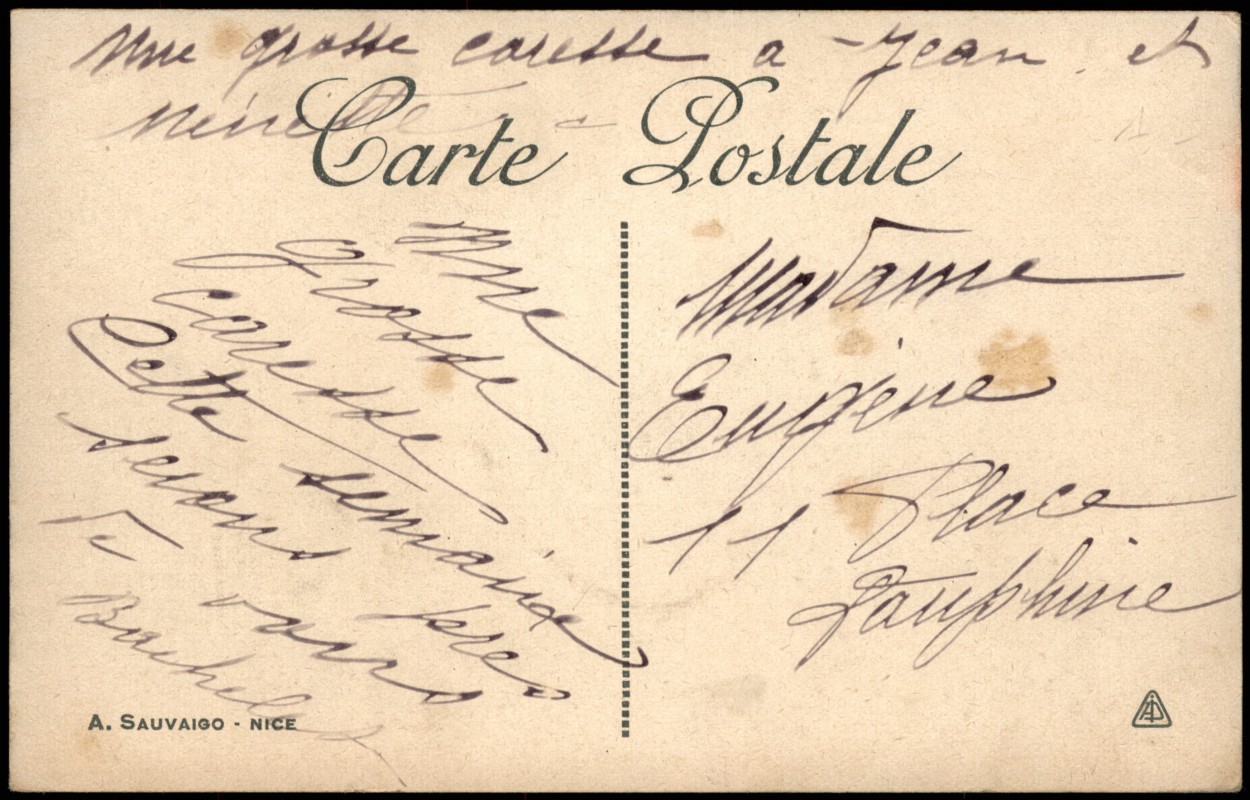 Une grosse caresse a Jean et
Ninette
Carte Postale
Une
grosse
caresse
Cette semaine
serons
vous
Madame
Eugène
11 Place
Dauphine
A. SAUVAIGO - NICE